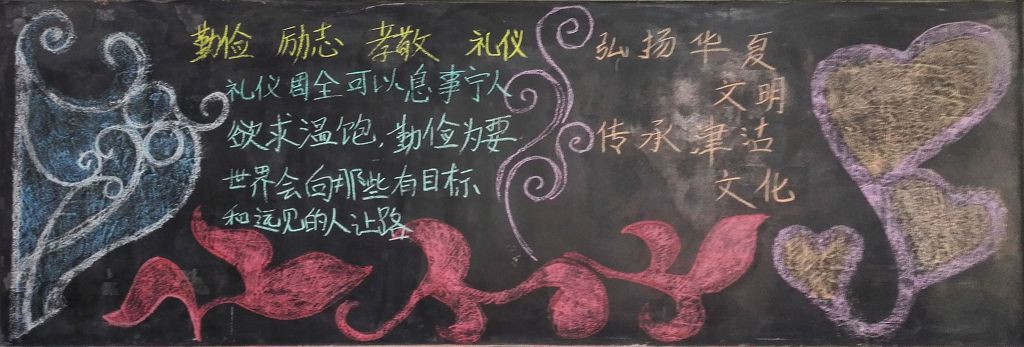 勤俭 励志 孝敬 礼仪
礼仪周全可以息事宁人
欲求温饱,勤俭为要
世界会向那些有目标
和远见的人让路
弘扬华夏
文明
传承津沽
文化